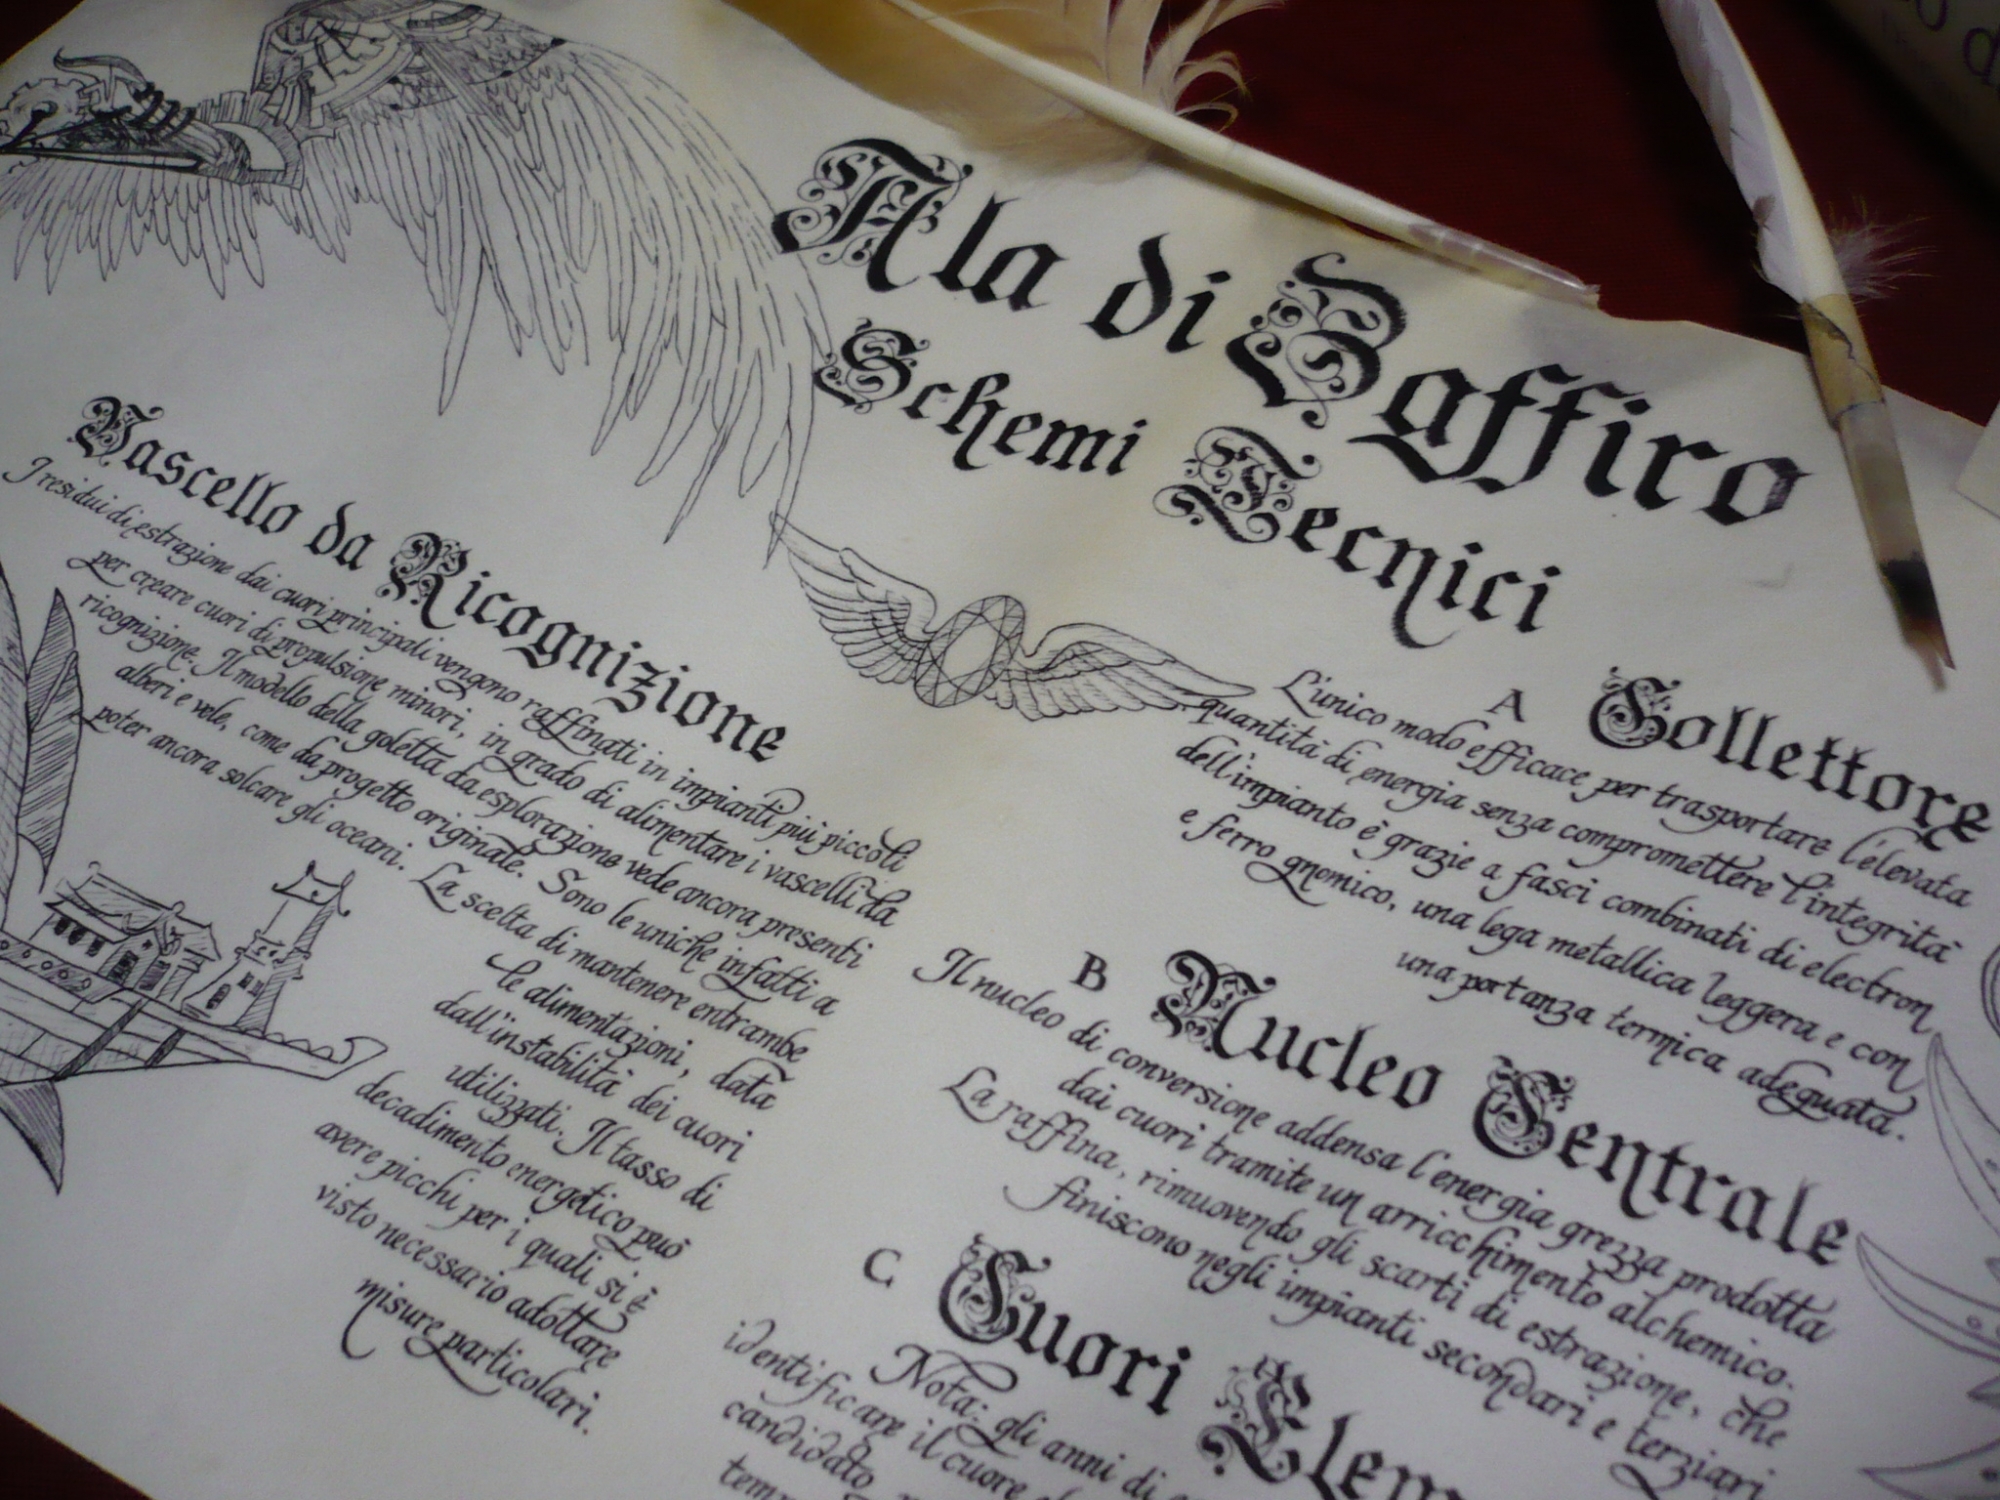 Ala di Zaffiro
Schemi Tecnici
Vascello da Ricognizione
I residui di estrazione dai cuori principali vengono raffinati in impianti più piccoli
per creare cuori di propulsione minori, in grado di alimentare i vascelli da
ricognizione. Il modello della goletta da esplorazione vede ancora presenti
alberi e vele, come da progetto originale. Sono le uniche infatti a
poter ancora solcare gli oceani. La scelta di mantenere entrambe
le alimentazioni, data
dall'instabilità dei cuori
utilizzati. Il tasso di
decadimento energetico può
avere picchi per i quali si è
visto necessario adottare
misure particolari.
A Collettore
L'unico modo efficace per trasportare l'elevata
quantità di energia senza compromettere l'integrità
dell'impianto è grazie a fasci combinati di electron
e ferro gnomico, una lega metallica leggera e con
una portanza termica adeguata.
B Nucleo Centrale
Il nucleo di conversione addensa l'energia grezza prodotta
dai cuori tramite un arricchimento alchemico.
La raffina, rimuovendo gli scarti di estrazione, che
finiscono negli impianti secondari e terziari
C Cuori Elem
Nota: gli anni di
identificare il cuore
candidato